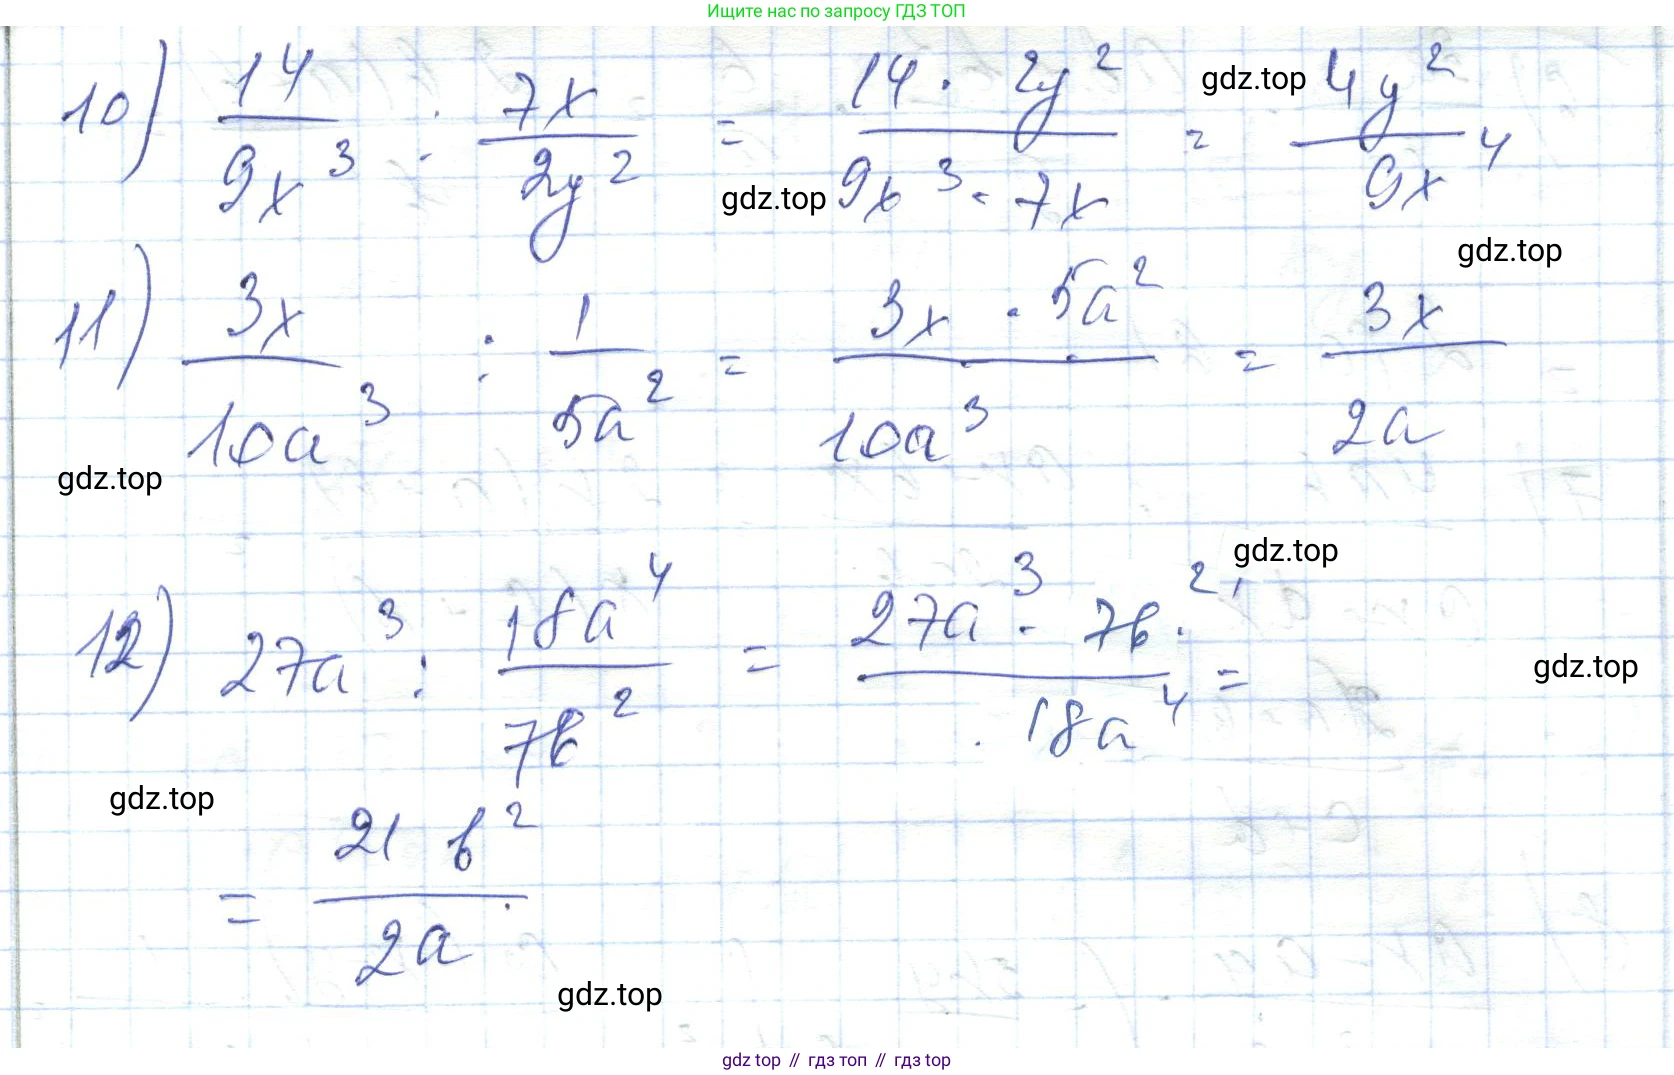 Ищите нас по запросу ГДЗ ТОП
10) 14/9x³ : 7x/2y² = 14 · 2y²/9x³ · 7x = 4y²/9x⁴
gdz.top
gdz.top
gdz.top
11) 3x/10a³ : 1/5a² = 3x · 5a²/10a³ = 3x/2a
gdz.top
gdz.top
12) 27a³ : 18a⁴/7b² = 27a³ · 7b²/18a⁴ =
gdz.top
gdz.top
= 21b²/2a
gdz.top
gdz top // гдз топ // гдз top